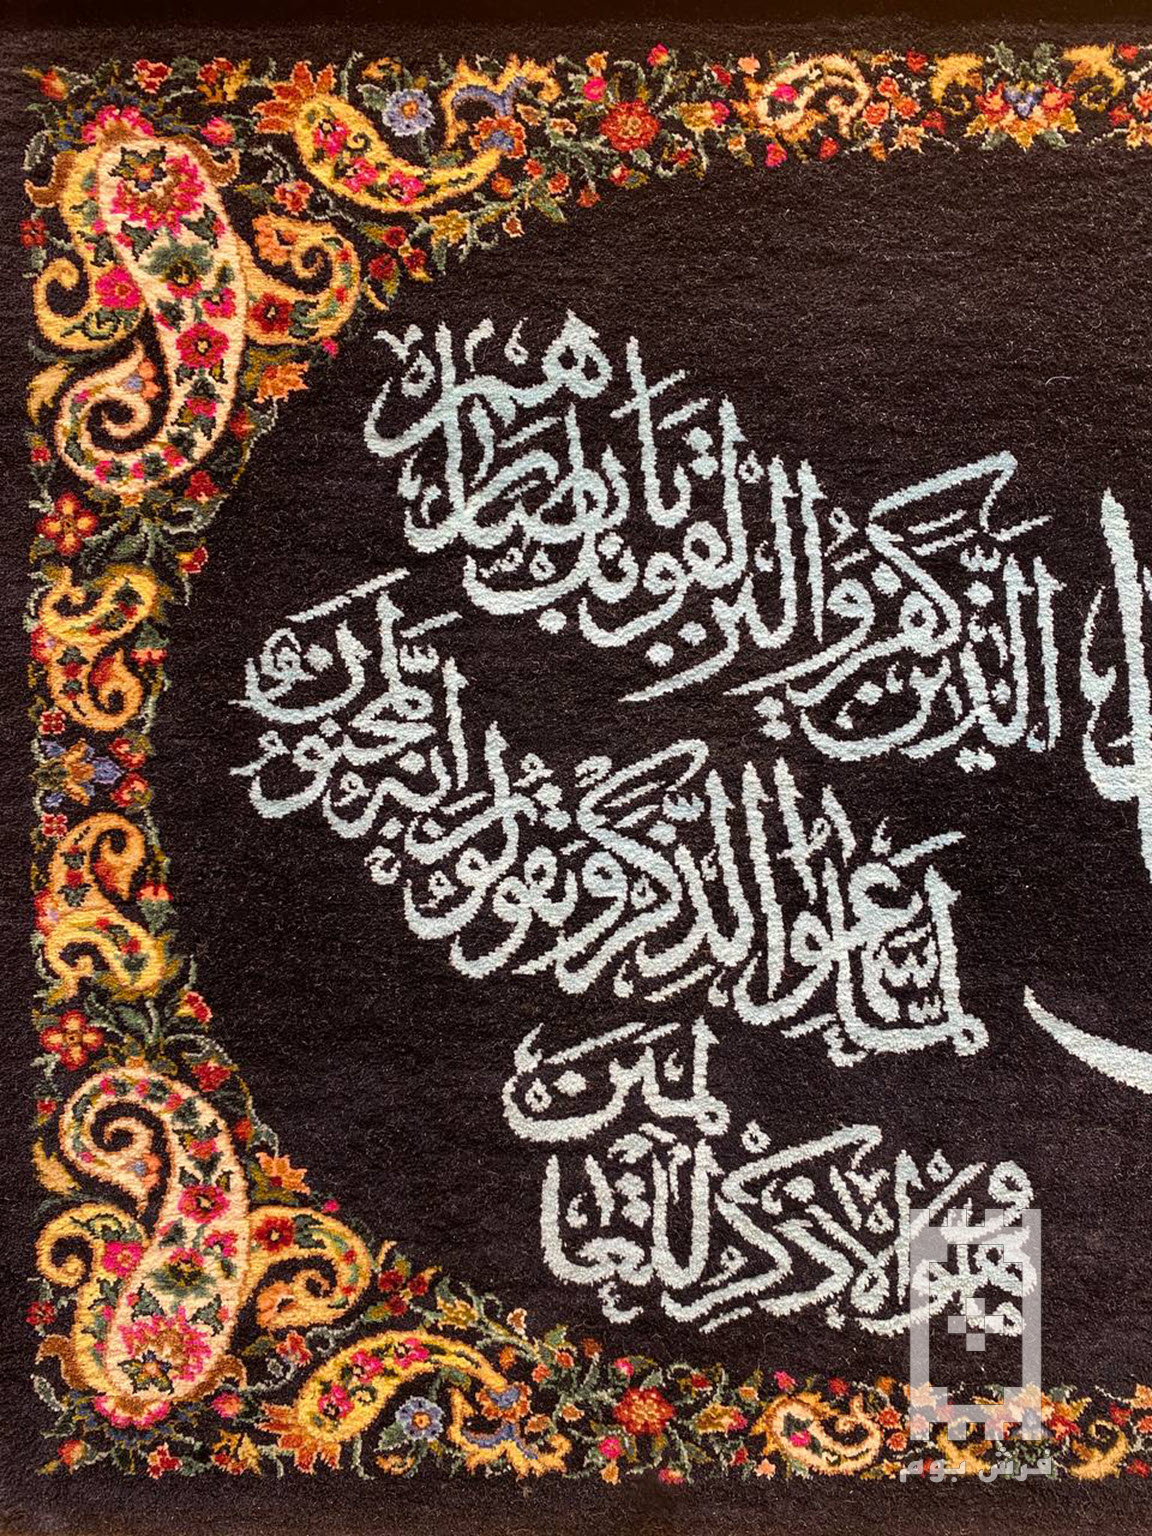 الَّذِينَ كَفَرُوا لَيُزْلِقُونَكَ بِأَبْصَارِهِمْ
لَمَّا سَمِعُوا الذِّكْرَ وَيَقُولُونَ إِنَّهُ لَمَجْنُونٌ
وَمَا هُوَ إِلَّا ذِكْرٌ لِلْعَالَمِينَ
فرش بوم